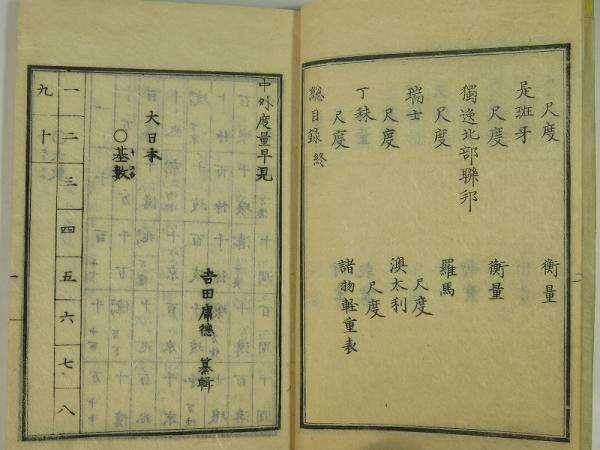 尺度　衡量
是班牙
尺度　衡量
獨逸北部聯邦
尺度　羅馬
瑞士　尺度
尺度　澳太利
丁秣　尺度
尺度　諸物軽重表
總目録終
中外度量早見
吉田庸德　纂輯
大日本
〇基數
一 二 三 四 五 六 七 八
九 十